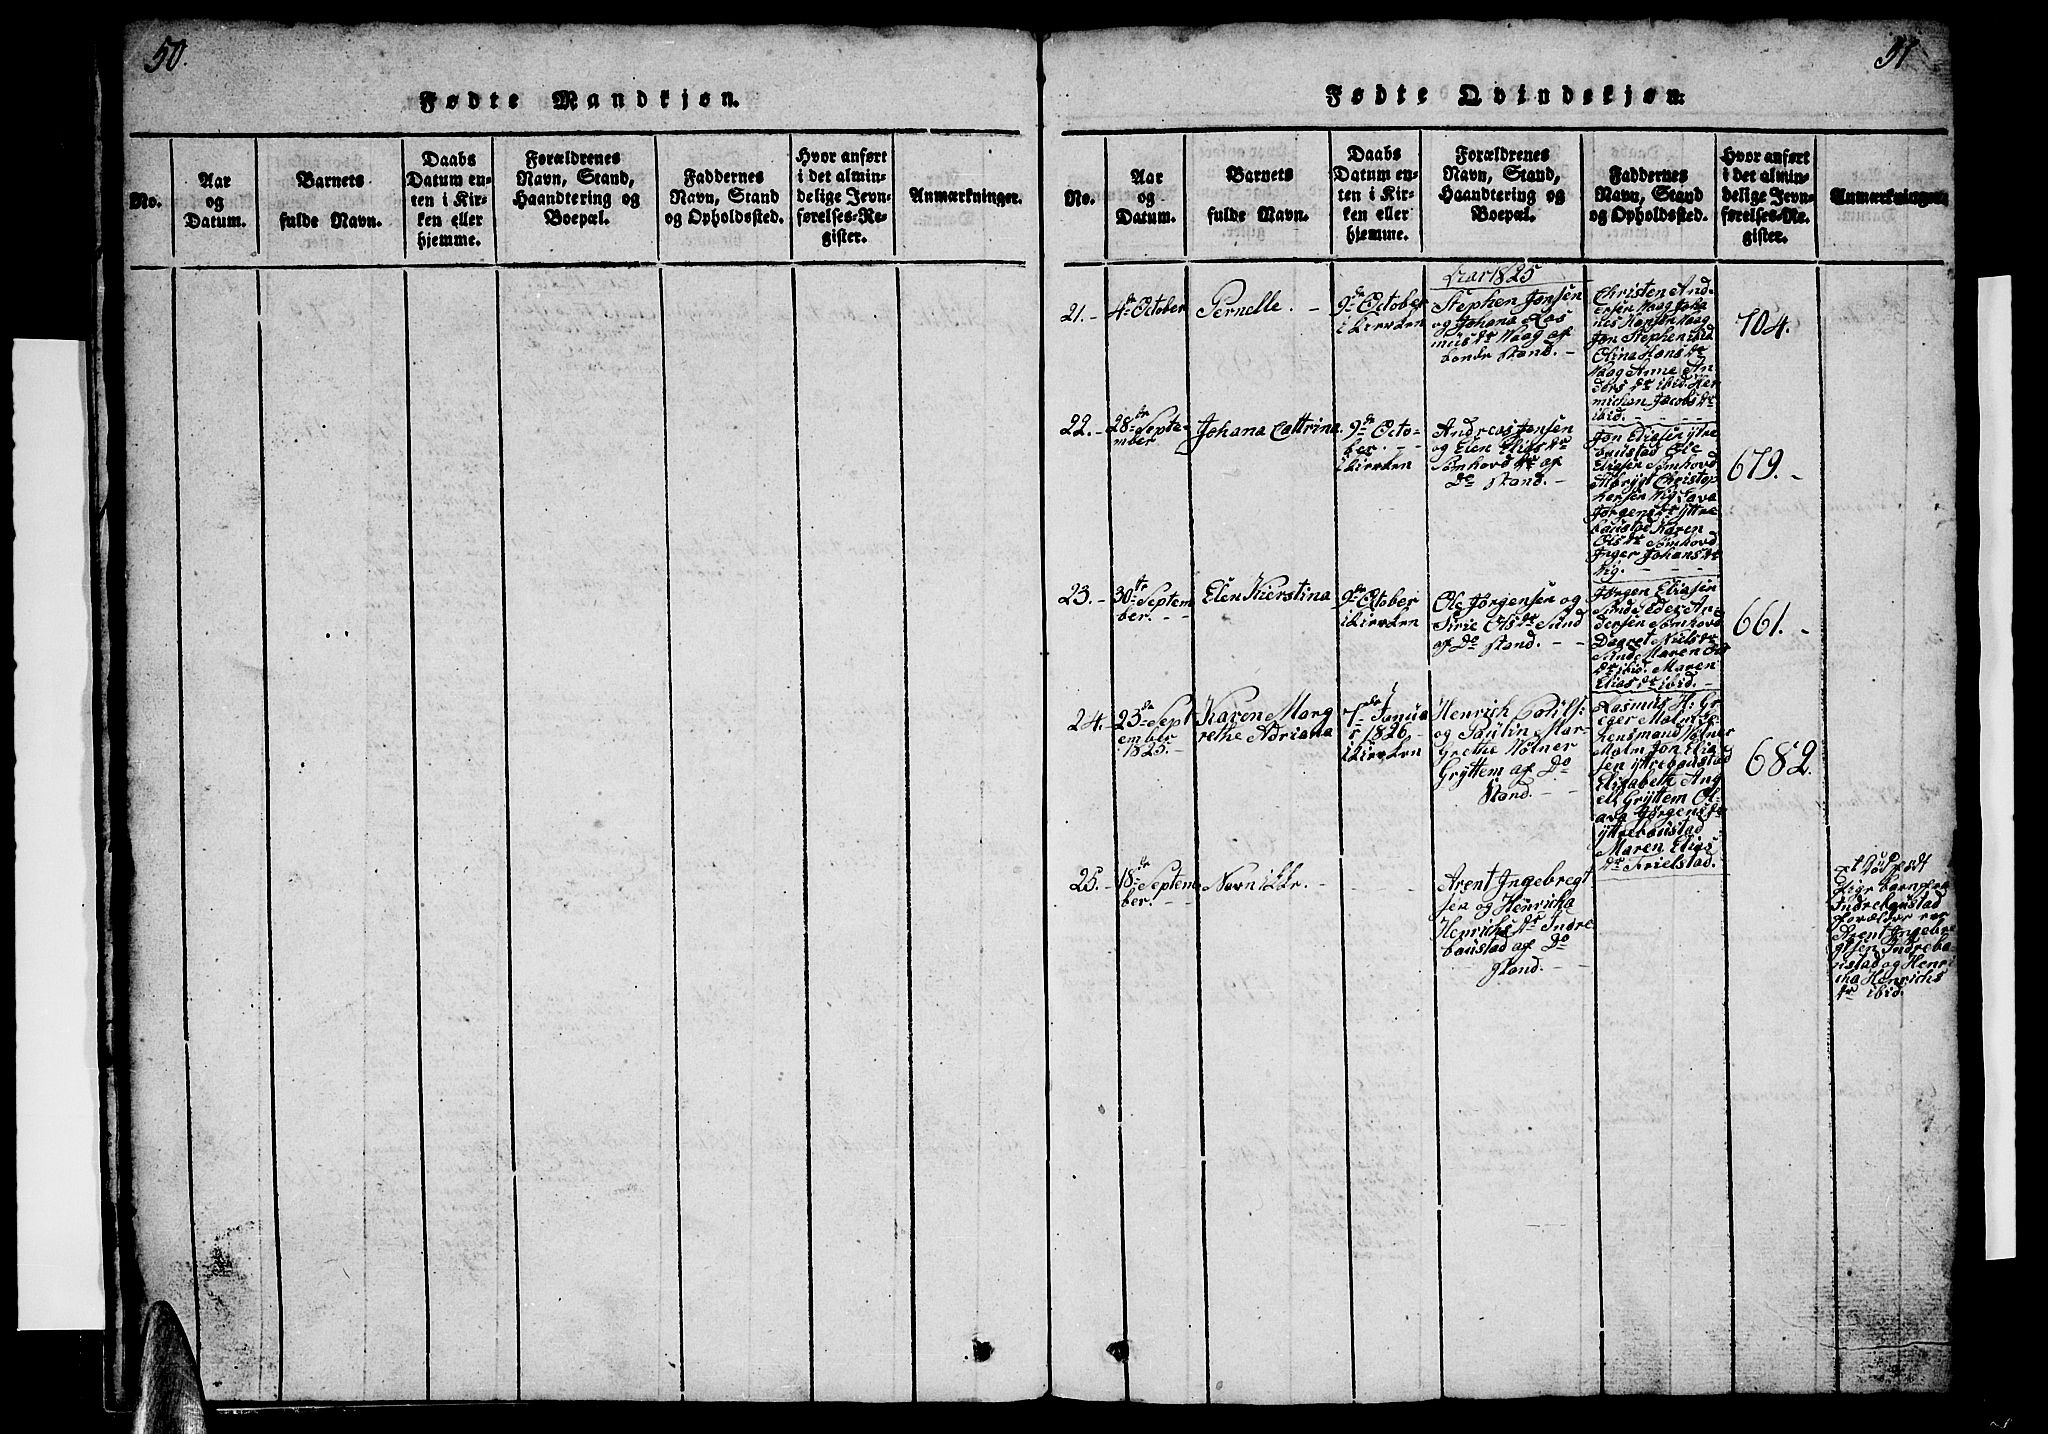 50.
Fødte Mandkjøn.
No.
Aar
og
Datum.
Barnets
fulde Navn.
Daabs
Datum en-
ten i Kir-
ken eller
hjemme.
Forældrenes
Navn, Stand,
Haandtering og
Boepæl.
Faddernes
Navn, Stand
og Opholdssted.
Hvor anført
i det almin-
delige Jevn-
førelses-Re-
gister.
Anmærkninger.
51
Fødte Qvindekjøn.
No.
Aar
og
Datum.
Barnets
fulde Navn.
Daabs
Datum en-
ten i Kir-
ken eller
hjemme.
Forældrenes
Navn, Stand,
Haandtering og
Boepæl.
Faddernes
Navn, Stand
og Opholdssted.
Hvor anført
i det almin-
delige Jevn-
førelses-Re-
gister.
Anmærkninger.
Aar 1825
21.-
4de October
Pernelle. -
9de October
i kirrken
Stephen Jonsen
og Johana Ras
müsdr Waag af
bonde stand. -
Christen And
ersen Waag Joha
nes Hansen Waag
Jon Stephen ibid
Olina Hansdr
Waag Anne An
dersdr ibid.
michen Jacobsdr
ibid. - - -
704.
22.-
28de Septe
mber
Johana Cattrina.
9de Octo-
ber. - -
i kirrken
Andreas Jonsen
og Elen Eliasdr
Sømhovd af
Do stand. -
Jon Eliasen ytre
baustad Ole
Eliasen Sømhovd
Christop
hersen Vig
Jørgensdr yttre
baustad Karen
Olsdr Sømhovd
Inger Johansdr
Vig. - - -
679. -
23.-
30te Septem
ber. - -
Elen Kierstina
9de October
i kirrken
Ole Jørgensen og
Sirie Olsdr Sund
af Do stand. - -
Jørgen Eliasen
Sund Peder An
dersen Sømhovd
Dagret Nielsdr
Sund Maren Ols
dr ibid. Maren
Eliasdr ibid. -
661. -
24.-
23de Sept
ember
1825. -
Karen Marg
rethe Adriana
1de Janua
r 1826 -
i kirrken
Henrik
og Paulin Mar-
grethe Wølner
Grÿttem af Do
Stand. - -
Rasmus H: Gr
eger Malm
Lensmand Wølner
Malm Jon Elia
sen yttrebaustad
Elisabeth Ang
ell Grÿttem Ol-
ava Jørgensdr
yttrebaustad
Maren Elias
dr Frielstad.
682.
25.-
18de Septem
ber. - -
Navnikkr. -
Arent Ingebregt
sen og Henricha
Henrichsdr Indre
baustad af Do
stand. - -
Et
barn fra
Indrebaustad
forælder er
Arent Ingebre
gtsen Indreba
ustad og Henri
cha Henrichs
dr ibid.